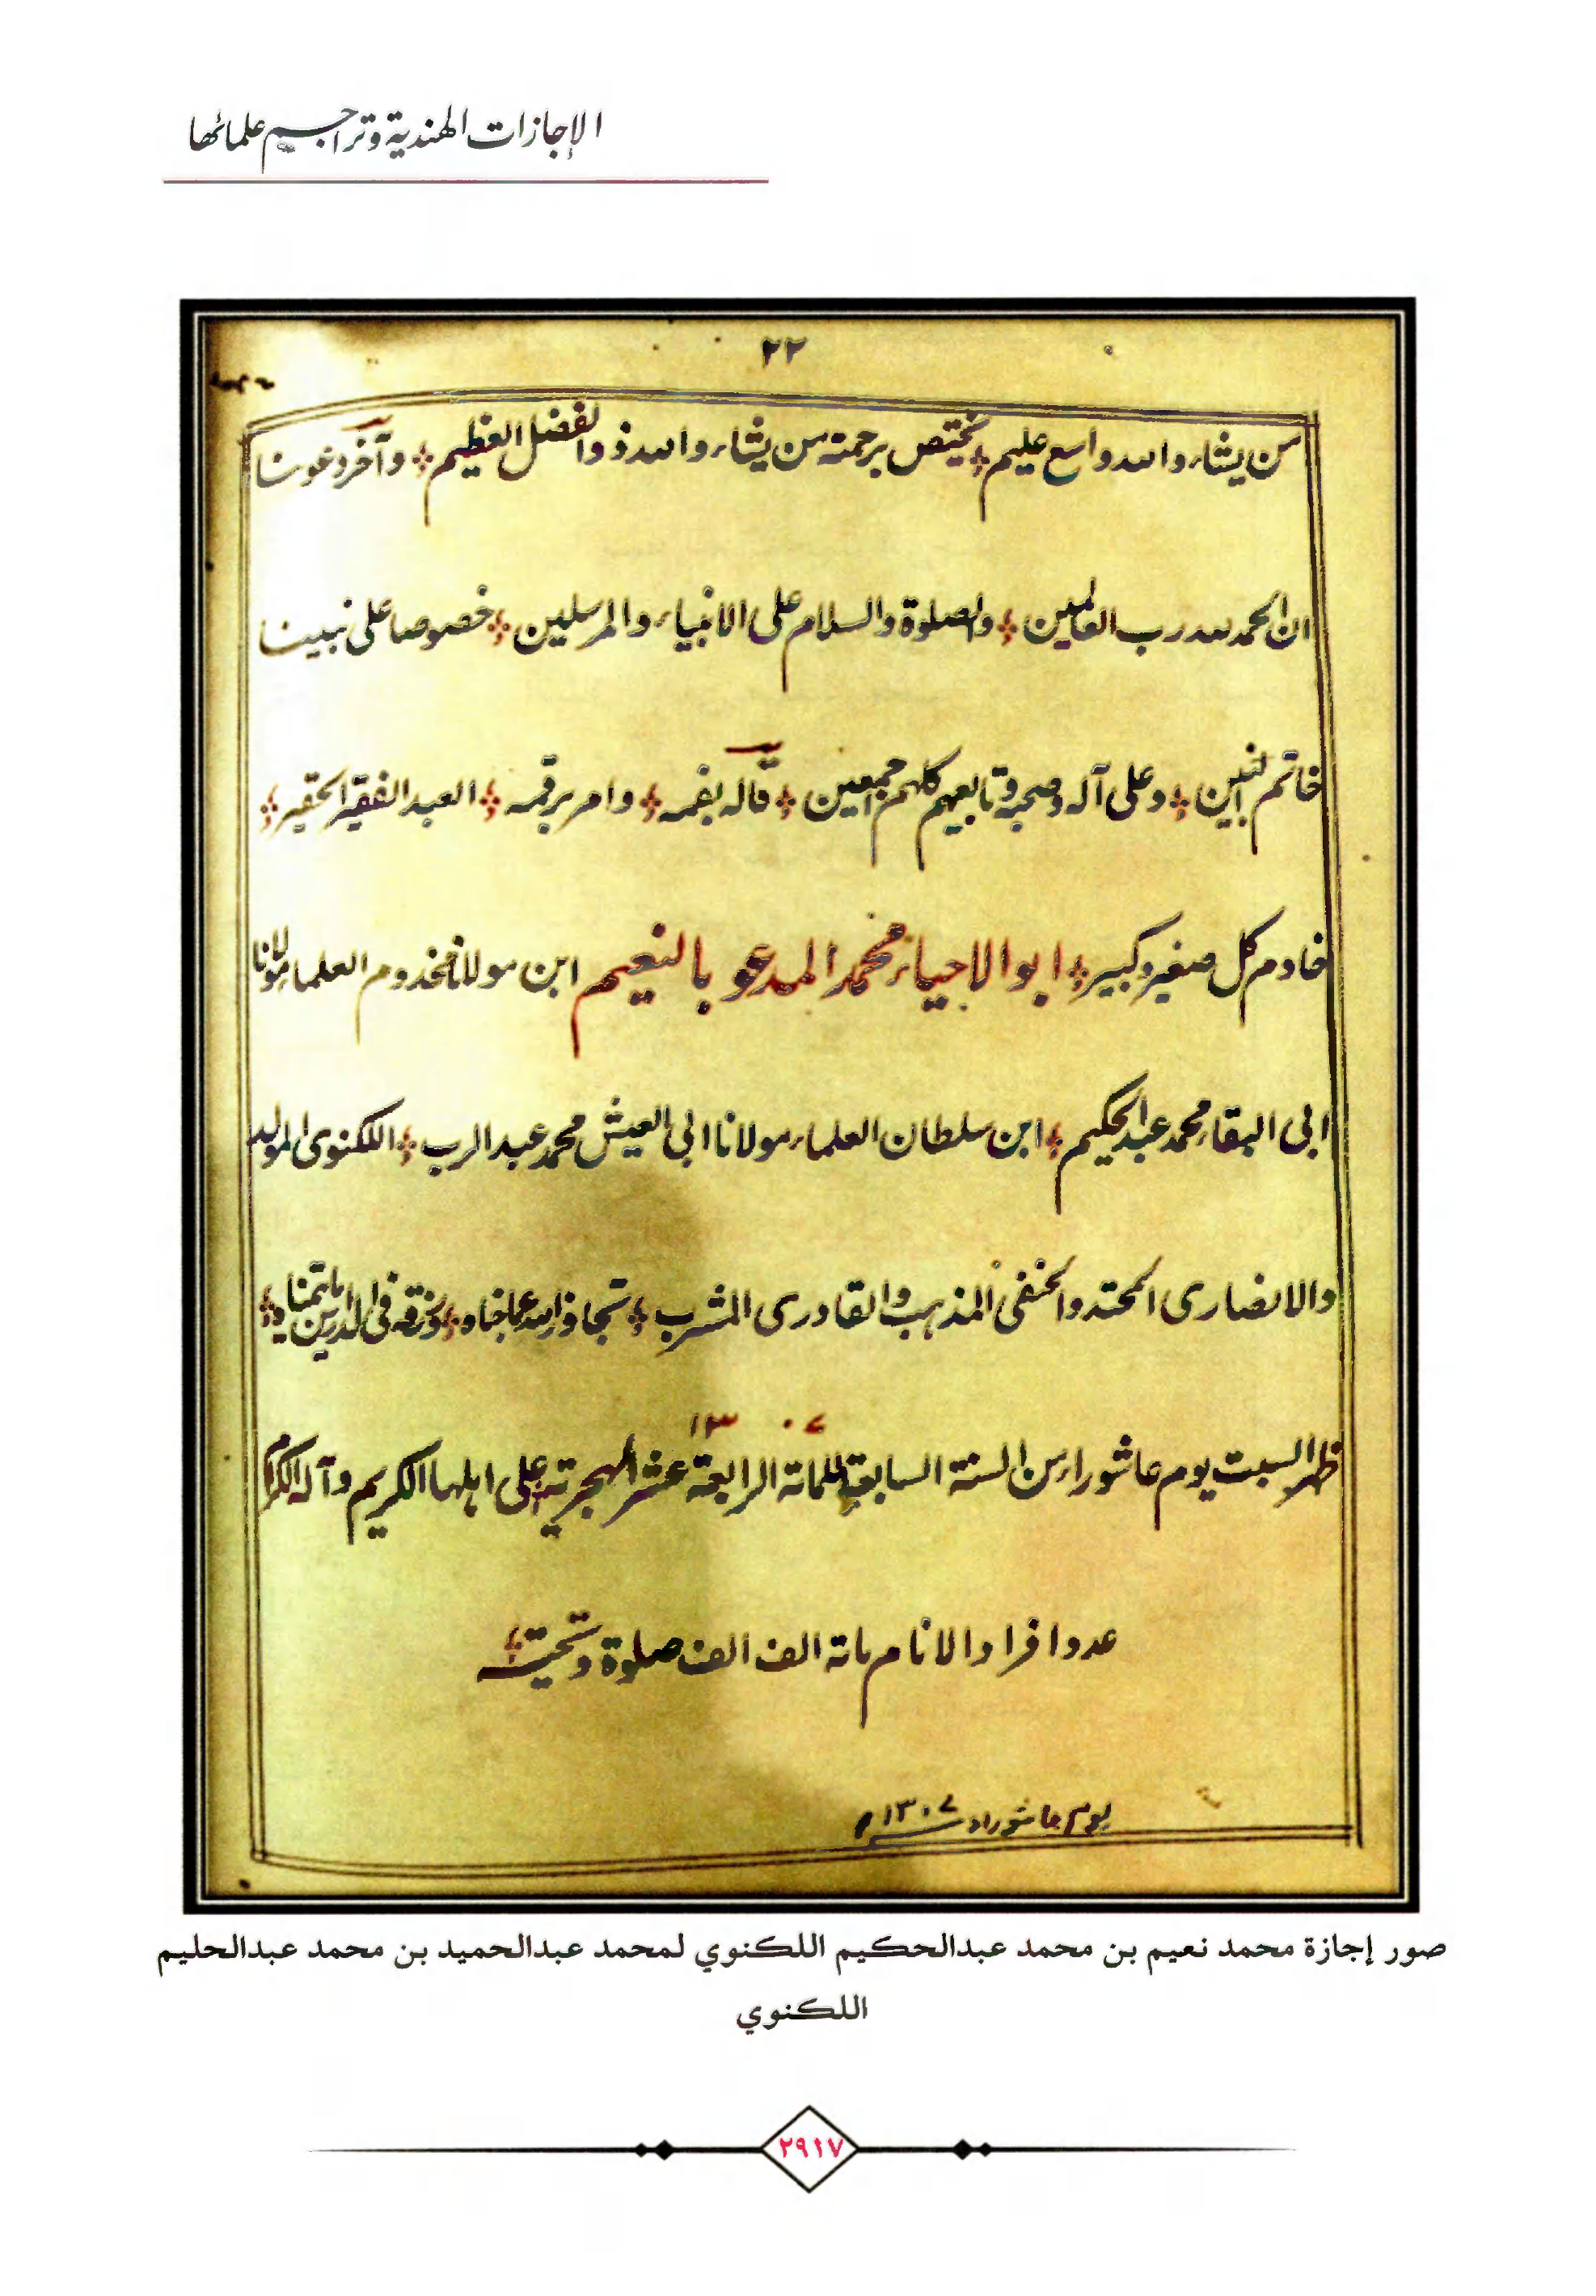 الإجازات الهندية وتراجيم علمائها
٢٢
من يشاء والله واسع عليم يختص برحمته من يشاء والله ذو الفضل العظيم وآخر دعونا
ان الحمد لله رب العالمين والصلوة والسلام على الانبياء والمرسلين خصوصا على نبينا
خاتم النبيين وعلى آله وصحبه وتابعيهم كلهم اجمعين قاله بفمه وامر برقمه العبد الفقير الحقير
خادم كل صغير وكبير ابو الاحياء محمد المدعو بالنعيم ابن مولانا مخدوم العلماء مولانا
ابى البقاء محمد عبد الحكيم ابن سلطان العلماء مولانا ابى العيش محمد عبد الرب اللكنوى المولد
والانصارى المحتد والحنفى المذهب والقادرى المشرب تجاوز الله عما جناه ورزقه فى الدارين ما يتمناه
١٣٠٧
ظهر السبت يوم عاشوراء من السنة السابعة للمائة الرابعة عشر الهجرية على اهلها الكريم وآله الكرام
عدد افراد الانام مائة الف الف صلوة وتحية
يوم عاشوراء ١٣٠٧
صور إجازة محمد نعيم بن محمد عبدالحكيم اللكنوي لمحمد عبدالحميد بن محمد عبدالحليم
اللكنوي
٢٩١٧